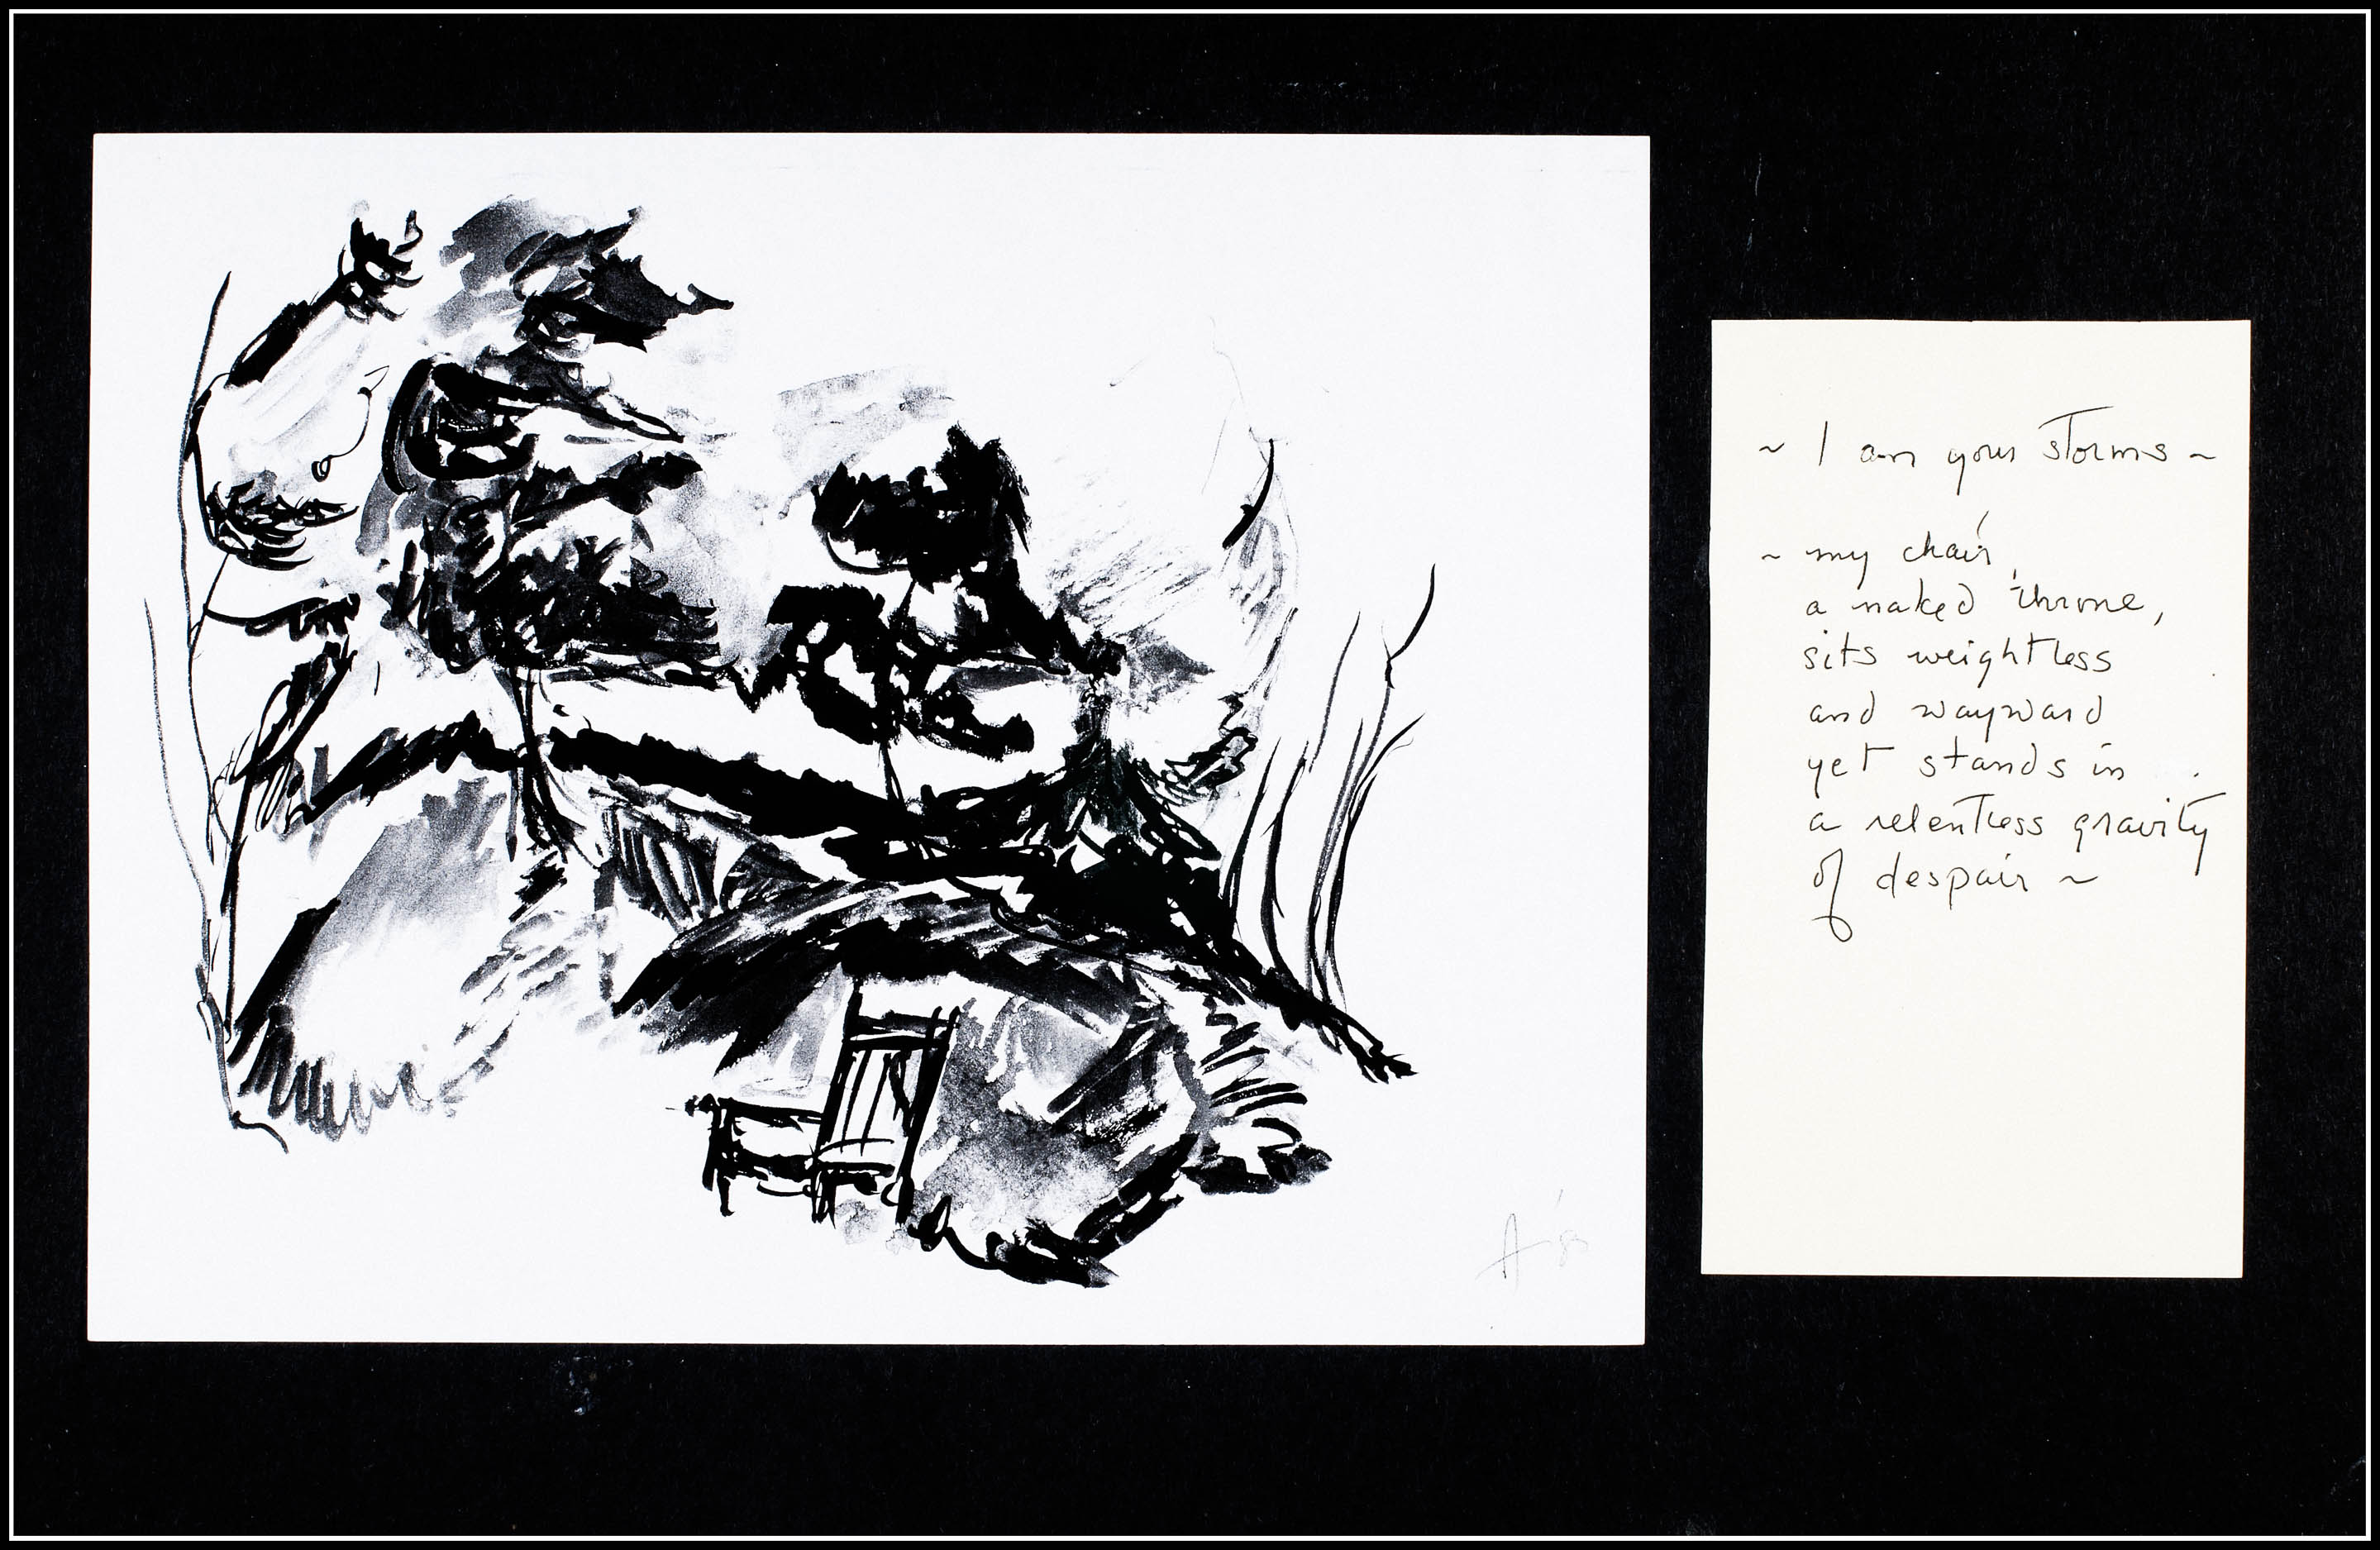 ~ I am your storms ~
~ my chair,
a naked throne,
sits weightless
and wayward
yet stands in
a relentless gravity
of despair ~